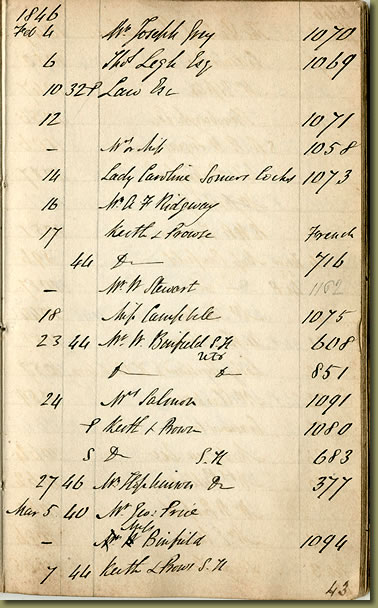 1846
Feb 4 Mr Joseph Guy 1070
6 Thos Legh Esq 1069
10 32 P Law Esq
12 1071
– Mr or Miss 1058
14 Lady Caroline Somers Cocks 1073
16 Mr A F Ridgway
17 Keith & Prowse French
44 Do – 716
– Mr W Stewart 1182
18 Miss Campbell 1075
23 44 Mr W Binfield S.H 608
Do Do 851
24 Mrs Salmon 1091
P Keith & Prowse 1080
S Do S.H 683
27 46 Mr Hopkinson Do 377
Mar 5 40 Mr Jas: Price
– Binfield 1094
7 44 Keith & Prowse S.H
43